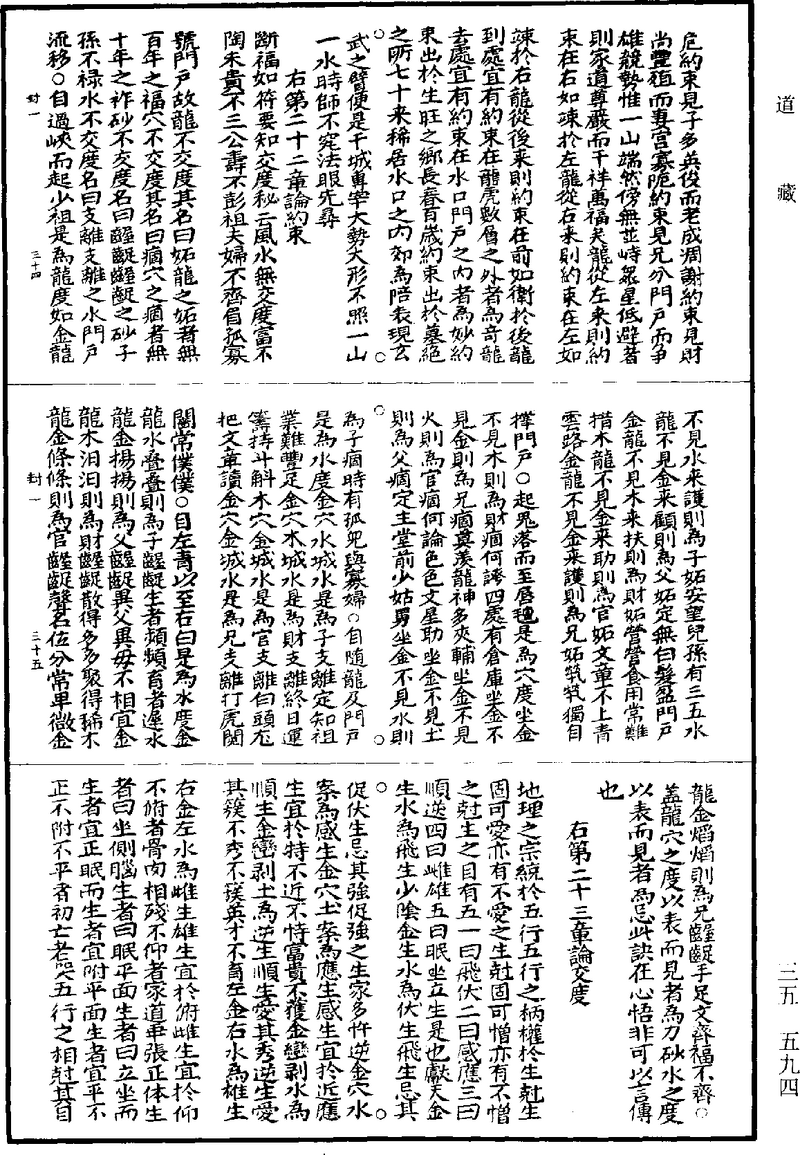 道藏
卮約束見子多英俊而老成凋謝約束見財
尚豐殖而專宮寡陁約束見兄分門戶而爭
雄競勢惟一山端然傍無並峙衆星低避者
則家道尊嚴而千祥萬福矣龍從左来則約
束在右如竦於左龍從右来則約束在左如
竦於右龍從後来則約束在前如衛於後龍
到處宜有約束在龍虎數層之外者為奇龍
去處宜有約束在水口門戶之内者為妙約
束出於生旺之鄉長春百歲約束出於墓絕
之所七十来稀居水口之内卻為陪表現玄
武之臂便是干城專學大勢大形不照一山
一水時師不究法眼先尋
右第二十二章論約束
斷福如符要知交度秘云風水無交度富不
陶朱貴不三公壽不彭祖夫婦不齊眉孤寡
號門戶故龍不交度其名曰妬龍之妬者無
百年之福穴不交度其名曰痼穴之痼者無
十年之祚砂不交度名曰齷齪齷齪之砂子
孫不祿水不交度名曰支離支離之水門戶
流移○自過峽而起少祖是為龍度如金龍
封一 三十四
不見水来護則為子妬安望兒孫有三五水
龍不見金来顧則為父妬定無白髮盈門戶
金龍不見木来扶則為財妬營營食用常難
措木龍不見金来助則為官妬文章不上青
雲路金龍不見金来護則為兄妬煢煢獨自
撑門戶○起鬼落而至唇氊是為穴度坐金
不見木則為財痼何誇四處有倉庫坐金不
見金則為兄痼奠羨龍神多夾輔坐金不見
火則為官痼何論色色文星助坐金不見土
則為父痼定生堂前少姑男坐金不見水則
為子痼時有孤兒與寡婦○自隨龍及門戶
是為水度金穴水城水是為子支離定知祖
業難豐足金穴木城水是為財支離終日運
籌持斗斛木穴金城水是為官支離白頭㐳
把文章讀金穴金城水是為兄支離打虎闘
闘常僕僕○自左青以至右白是為水度金
龍水疊疊則為子齷齪生者頻頻育者遲水
龍金揚揚則為父齷齪異父異毋不相宜金
龍木汨汨則為財齷齪散得多多聚得稀木
龍金條條則為官齷齪聲名位分常卑微金
封一 三十五
龍金熖熖則為兄齷齪手足文齊福不齊○
蓋龍穴之度以表而見者為力砂水之度
以表而見者為忌此訣在心悟非可以言傳
也
右第二十三章論交度
地理之宗統於五行五行之柄權於生尅生
固可愛亦有不愛之生尅固可憎亦有不憎
之尅生之目有五一曰飛伏二曰感應三曰
順逆四曰雌雄五曰眠坐立生是也獻天金
生水為飛生少陰金生水為伏生飛生忌其
促伏生忌其強促強之生家多忤逆金穴水
案為感生金穴土案為應生感生宜於近應
生宜於特不近不恃富貴不獲金巒剥水為
順生金巒剥土為逆生順生愛其秀逆生愛
其簇不秀不簇英才不育左金右水為雄生
右金左水為雌生雄生宜於俯雌生宜於仰
不俯者骨肉相殘不仰者家道乖張正体生
者曰坐側腦生者曰眠平面生者曰立坐而
生者宜正眠而生者宜附平面生者宜平不
正不附不平者初亡老哭五行之相尅其目
三五 五九四